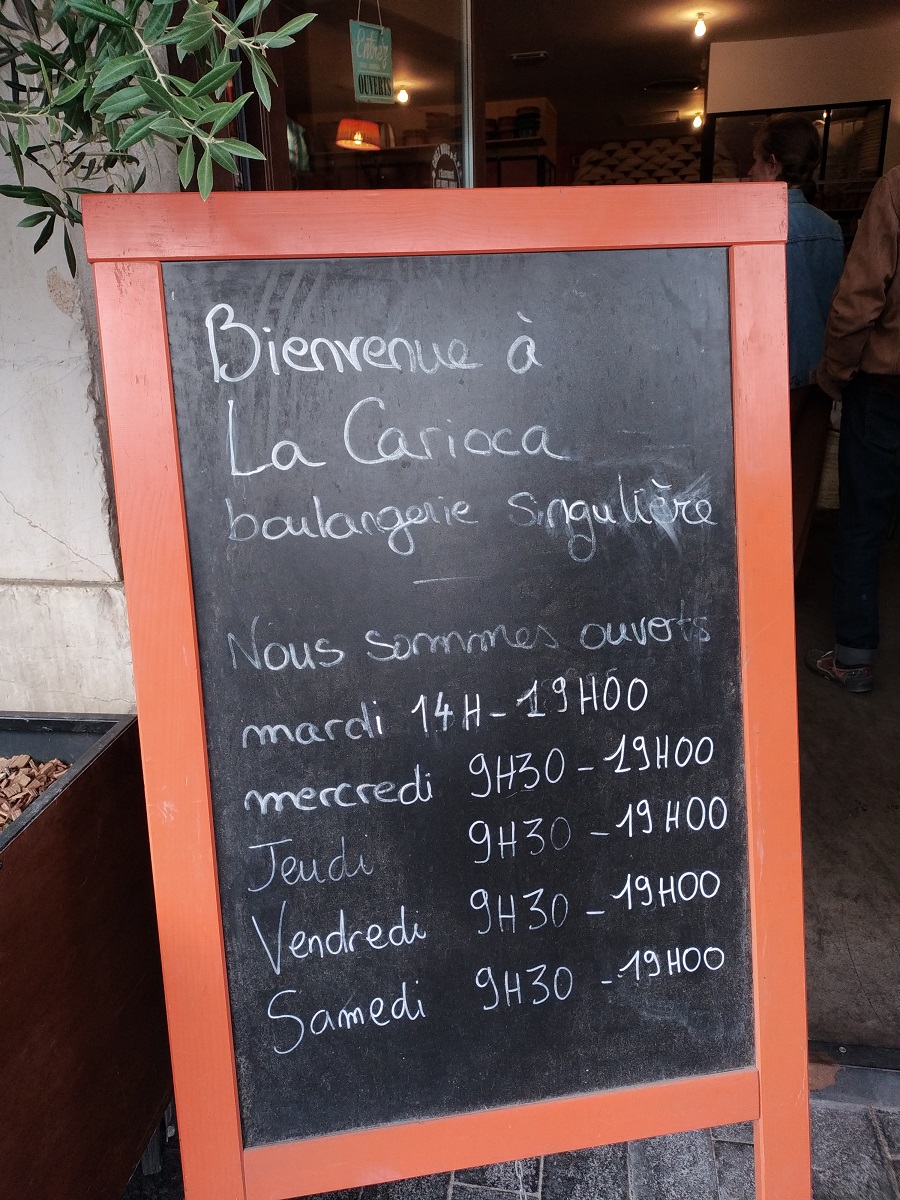 Entrez
OUVERTS
Bienvenue à
La Carioca
boulangerie singulière
Nous sommes ouverts
mardi 14H - 19H00
mercredi 9H30 - 19H00
Jeudi 9H30 - 19H00
Vendredi 9H30 - 19H00
Samedi 9H30 - 19H00